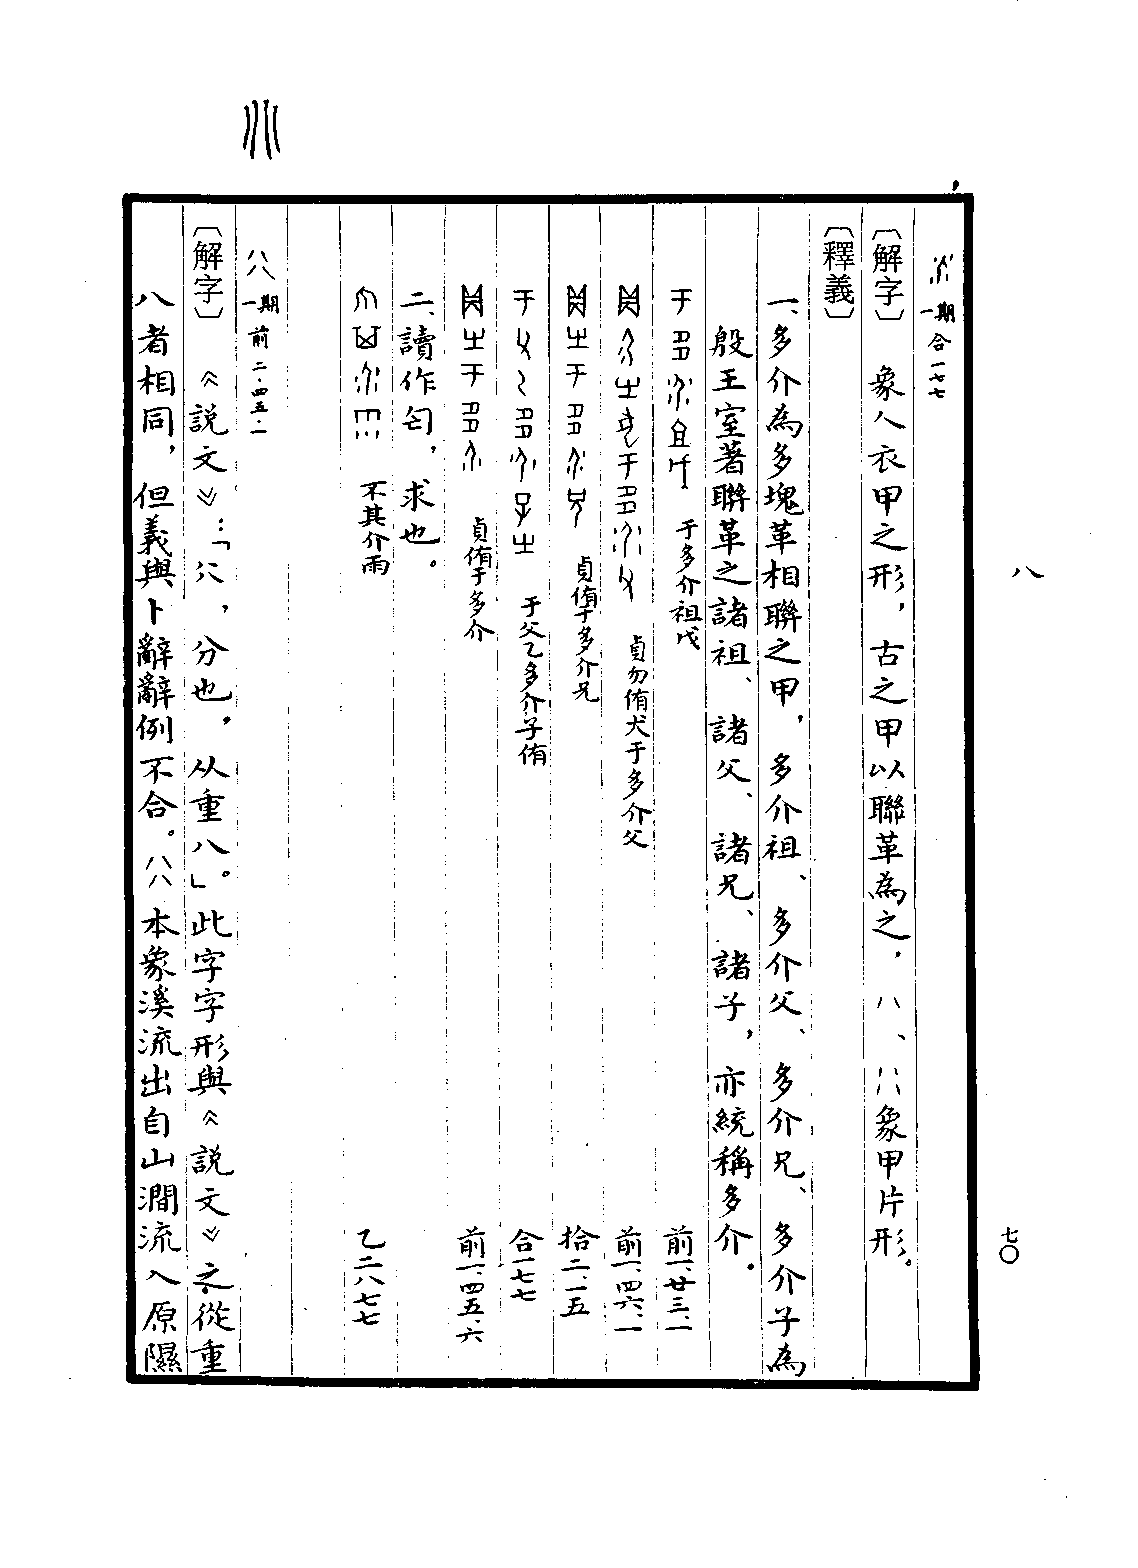 八
七〇
一期 合一七七
〔解字〕 象人衣甲之形，古之甲以聯革為之，八、象甲片形。
〔釋義〕
一、多介為多塊革相聯之甲，多介祖、多介父、多介兄、多介子為
殷王室著聯革之諸祖、諸父、諸兄、諸子，亦統稱多介。
于多介祖戊 前一、廿三、一
貞勿侑犬于多介父 前一、四六、一
貞侑于多介兄 拾二、一五
于父乙多介子侑 合一七七
貞侑于多介 前一、四五、六
二、讀作匄，求也。
不其介雨 乙二八七七
一期 前二・四五・一
〔解字〕 《說文》：「，分也，从重八。」此字字形與《說文》之從重
八者相同，但義與卜辭辭例不合。本象溪流出自山澗流入原隰